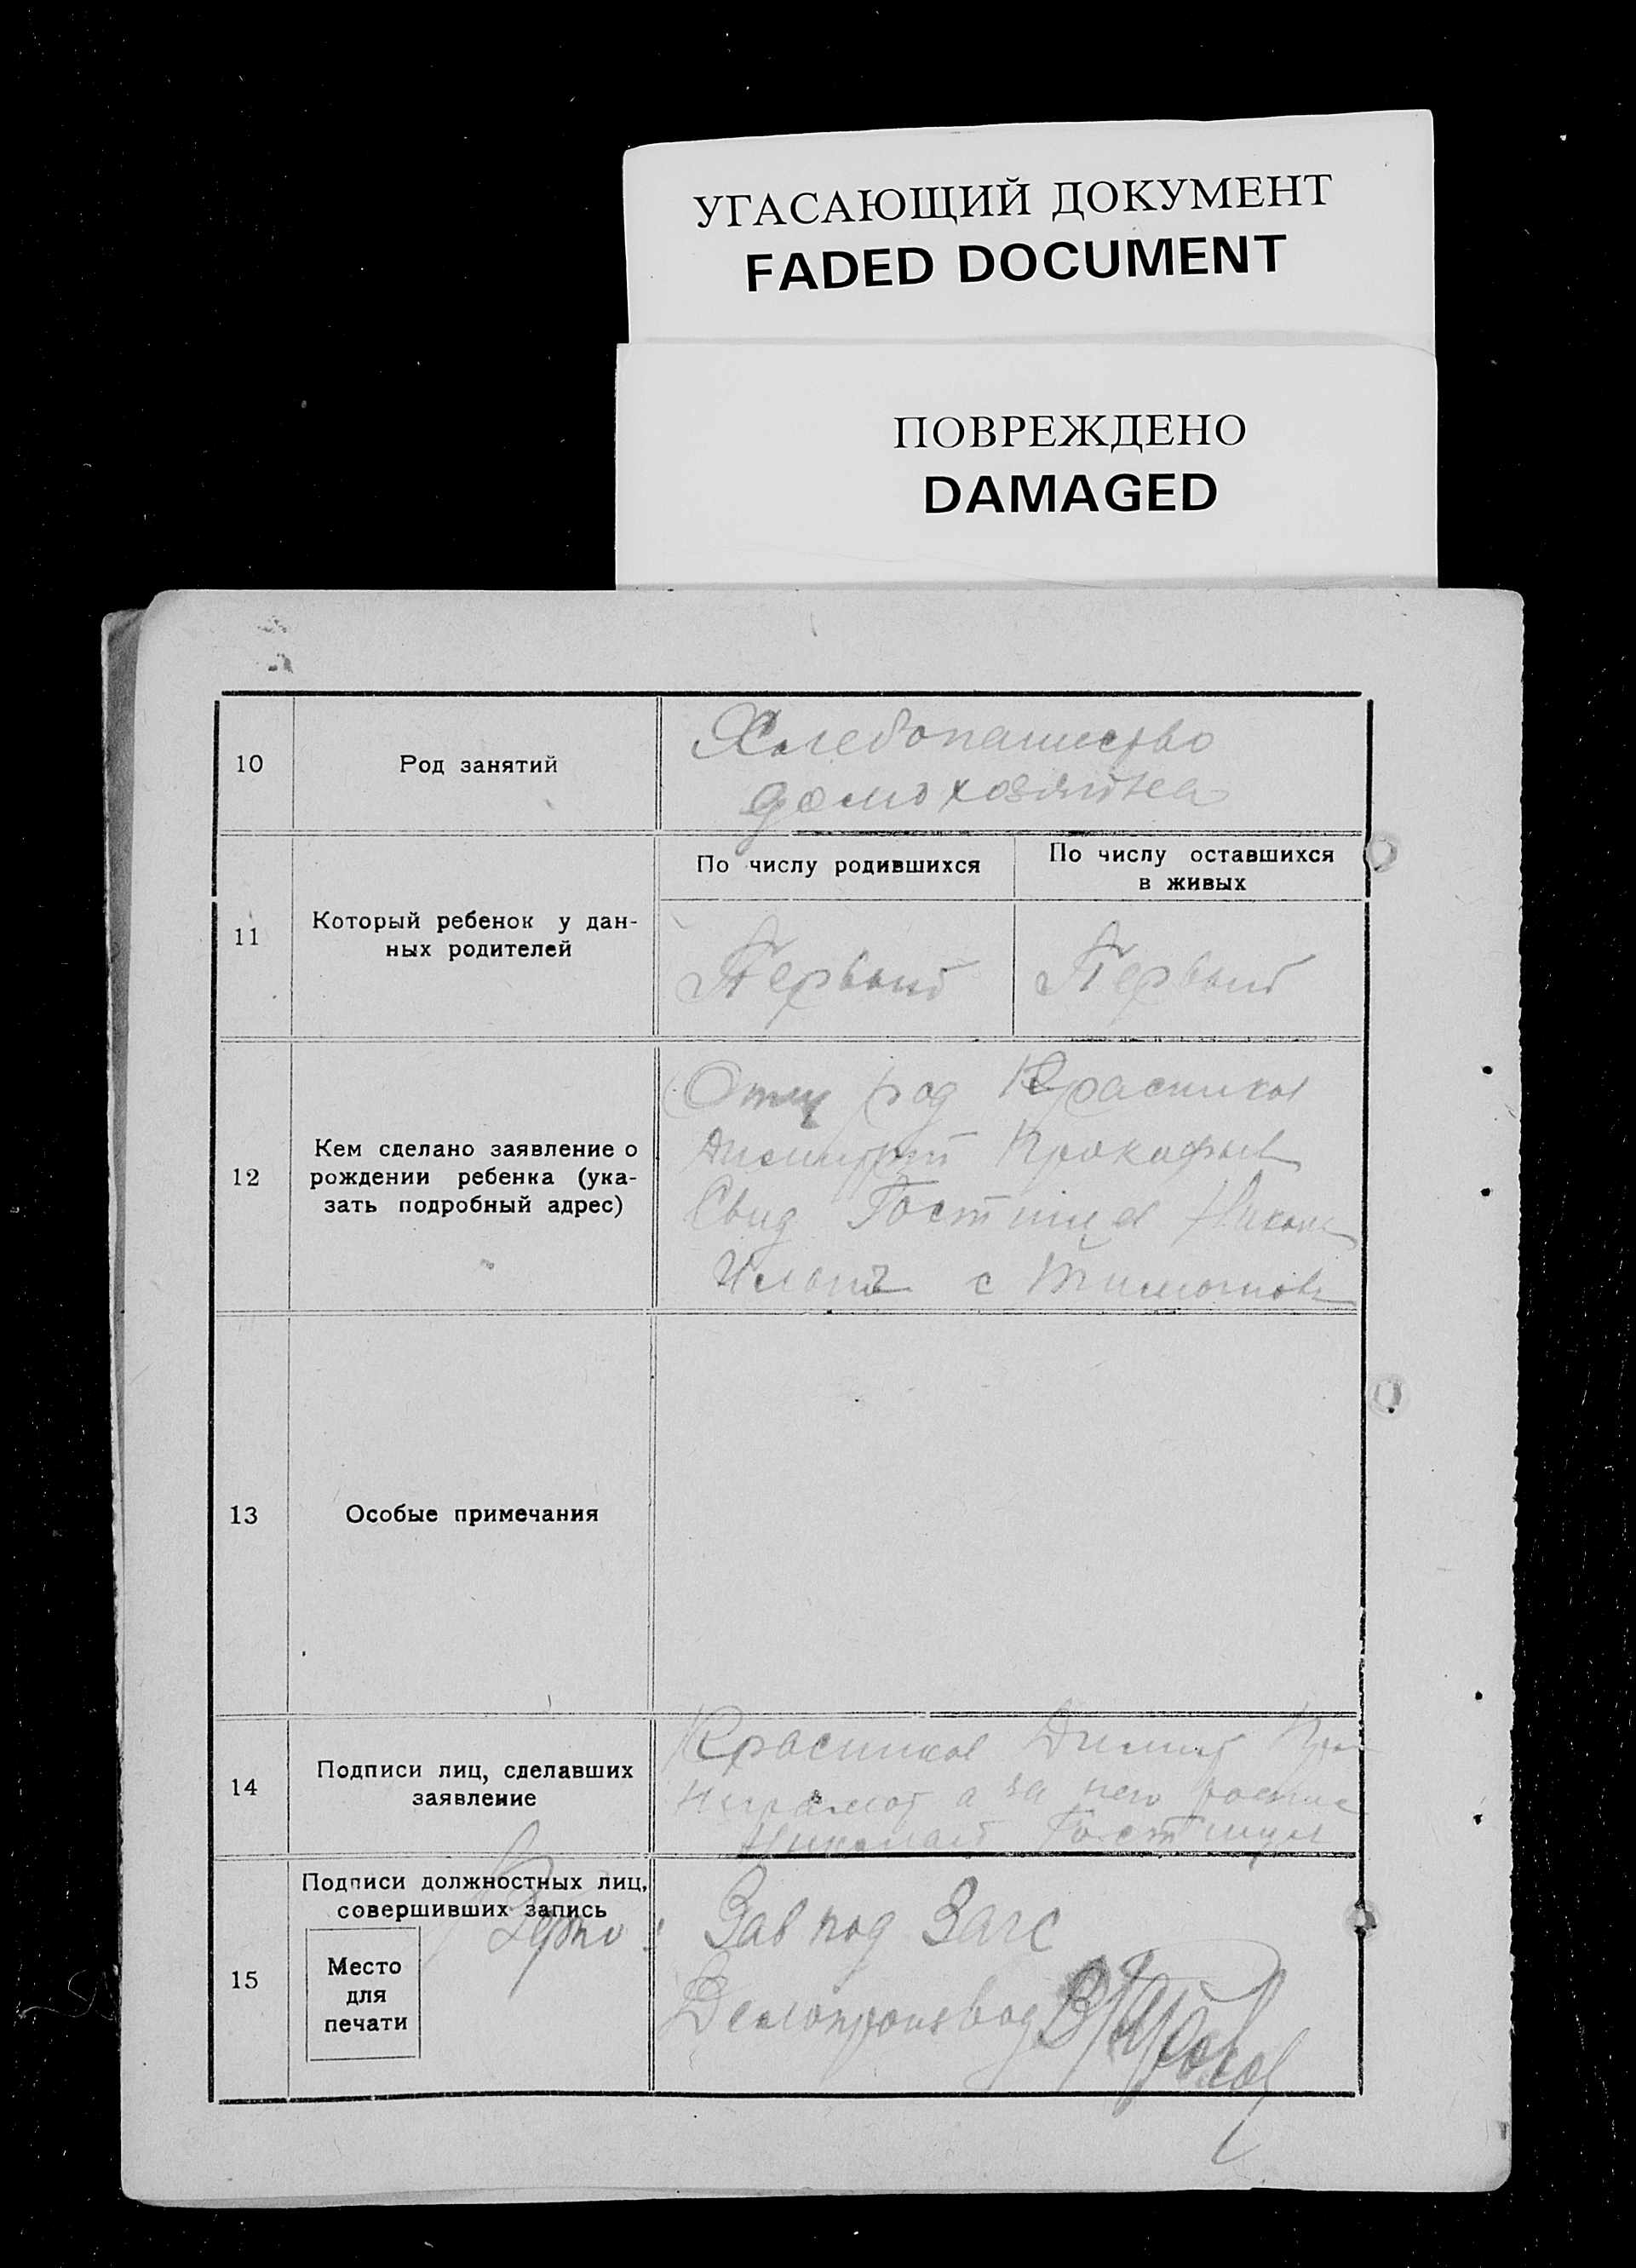 УГАСАЮЩИЙ ДОКУМЕНТ
FADED DOCUMENT
ПОВРЕЖДЕНО
DAMAGED
10
Род занятий
Хлебопашество
домохозяйка
11
Который ребенок у дан-
ных родителей
По числу родившихся
По числу оставшихся
в живых
Первый
Первый
12
Кем сделано заявление о
рождении ребенка (ука-
зать подробный адрес)
Отец род Красников
Димитрий Прокофьев
Свид Гостищев Никол
с Тимонов
13
Особые примечания
14
Подписи лиц, сделавших
заявление
Красников Димит
а за него роспис
Николай Гостищев
15
Подписи должностных лиц,
совершивших запись
Место
для
печати
Верно:
Зав под Загс
Делопроизвод